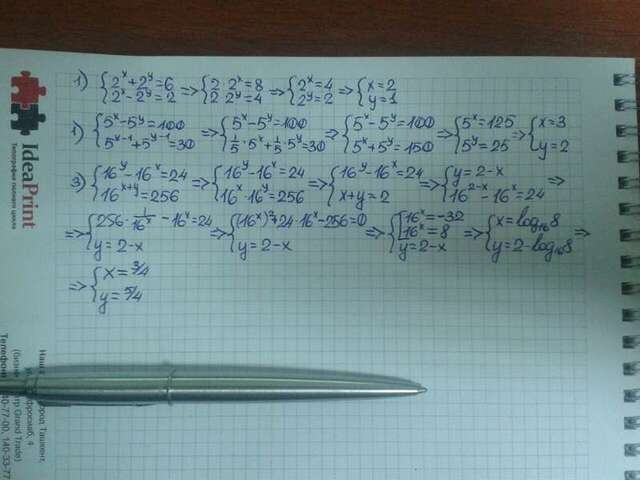 1) {2^x+2^y=6 2^x-2^y=2 => {2·2^x=8 2·2^y=4 => {2^x=4 2^y=2 => {x=2 y=1
1) {5^x-5^y=100 5^(x-1)+5^(y-1)=30 => {5^x-5^y=100 1/5·5^x+1/5·5^y=30 => {5^x-5^y=100 5^x+5^y=150 => {5^x=125 5^y=25 => {x=3 y=2
3) {16^y-16^x=24 16^(x+y)=256 => {16^y-16^x=24 16^x·16^y=256 => {16^y-16^x=24 x+y=2 => {y=2-x 16^(2-x)-16^x=24 =>
=> {256·1/16^x-16^x=24 y=2-x => {(16^x)^2+24·16^x-256=0 y=2-x => {[16^x=-32 16^x=8 y=2-x => {x=log_16 8 y=2-log_16 8 =>
=> {x=3/4 y=5/4
IdeaPrint
Типография полного цикла
город Ташкент,
Grand Trade)
Телефоны
40-77-00, 140-33-77